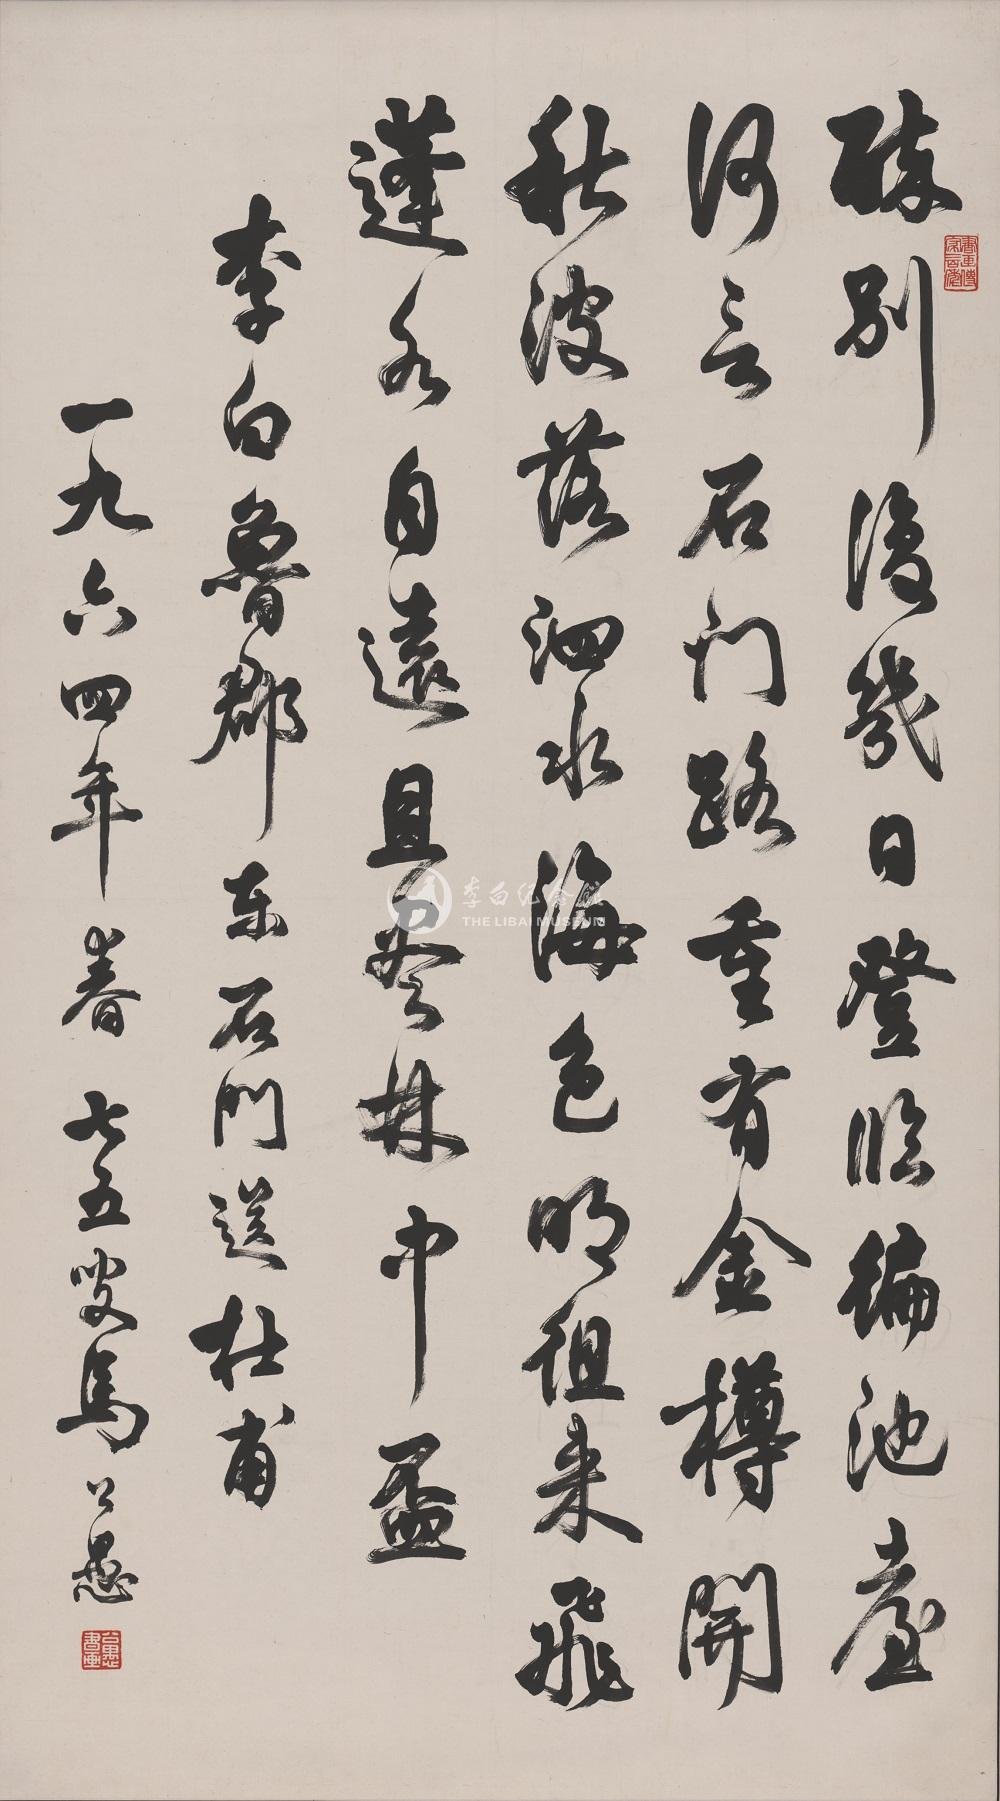 醉别後幾日登临徧池臺
何言石门路重有金樽開
秋波落泗水海色明徂来飛
蓬各自遠且尽林中盃
李白魯郡东石门送杜甫
一九六四年春七五叟馬公愚
李白纪念馆
THE LIBAI MUSEUM
公愚書画